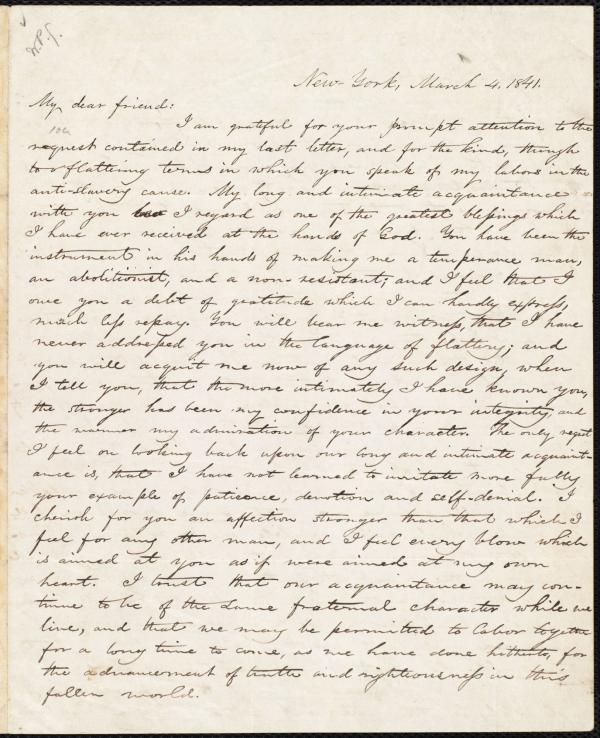 W.P.G.
New York, March 4, 1841.
My dear friend:
I am grateful for your prompt attention to the
request contained in my last letter, and for the kind, though
too flattering terms in which you speak of my labors in the
anti-slavery cause. My long and intimate acquaintance
with you I regard as one of the greatest blessings which
I have ever received at the hands of God. You have been the
instrument in his hands of making me a temperance man,
an abolitionist, and a non-resistant; and I feel that I
owe you a debt of gratitude which I can hardly express,
much less repay. You will bear me witness, that I have
never addressed you in the language of flattery; and
you will acquit me now of any such design, when
I tell you, that the more intimately I have known you,
the stronger has been my confidence in your integrity, and
the warmer my admiration of your character. The only regret
I feel on looking back upon our long and intimate acquaint-
ance is, that I have not learned to imitate more fully
your example of patience, devotion and self-denial. I
cherish for you an affection stronger than that which I
feel for any other man, and I feel every blow which
is aimed at you as if were aimed at my own
heart. I trust that our acquaintance may con-
tinue to be of the same fraternal character while we
live, and that we may be permitted to labor together
for a long time to come, as we have done hitherto, for
the advancement of truth and righteousness in this
fallen world.